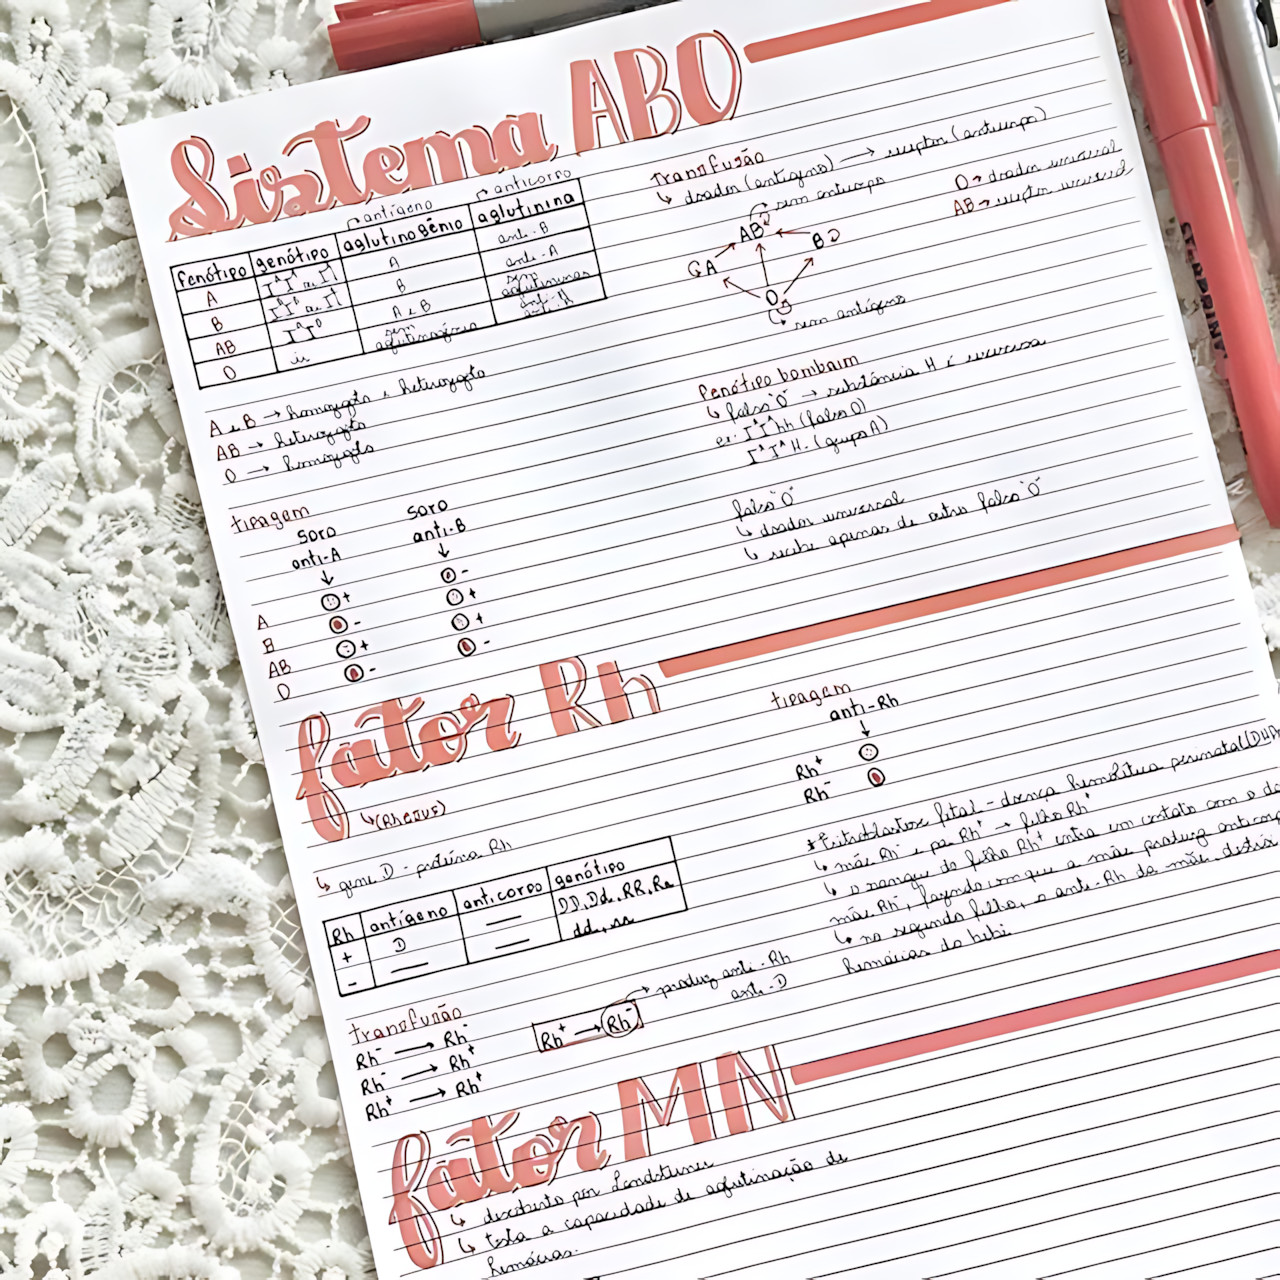 Sistema ABO
antígeno
anticorpo
fenótipo genótipo aglutinogênio aglutinina
A IᴬIᴬ ou Iᴬi A anti-B
B IᴮIᴮ ou Iᴮi B anti-A
AB IᴬIᴮ A e B sem aglutininas
O ii sem aglutinogênio anti-A anti-B
A e B → homozigoto e heterozigoto
AB → heterozigoto
O → homozigoto
transfusão
↳ doador (antígeno) → receptor (anticorpo)
O → doador universal
AB → receptor universal
sem anticorpo
AB
A B
O
↳ sem antígeno
fenótipo bombaim
↳ falso "O" → substância H é
ex: IᴬIᴬhh (falso O)
IᴬIᴬH- (grupo A)
falso "O"
↳ doador universal
↳ recebe apenas de outro falso "O"
tipagem
soro soro
anti-A anti-B
↓ ↓
A + -
B - +
AB + +
O - -
fator Rh
↳ (Rhesus)
↳ gene D - proteína Rh
Rh antígeno anticorpo genótipo
+ D — DD, Dd, RR, Rr
- — — dd, rr
transfusão
Rh⁻ → Rh⁻
Rh⁻ → Rh⁺
Rh⁺ → Rh⁺
Rh⁺ → Rh⁻
produz anti-Rh
anti-D
tipagem
anti-Rh
↓
Rh⁺
Rh⁻
*Eritroblastose fetal - doença hemolítica perinatal
↳ mãe Rh⁻ e pai Rh⁺ → filho Rh⁺
↳ o sangue do filho Rh⁺ entra em contato com o da
mãe Rh⁻, fazendo com que a mãe produza
↳ no segundo filho, o anti-Rh da mãe destrói
hemácias do bebê
fator MN
↳ descoberto por Landsteiner
↳ testa a capacidade de aglutinação de
hemácias.